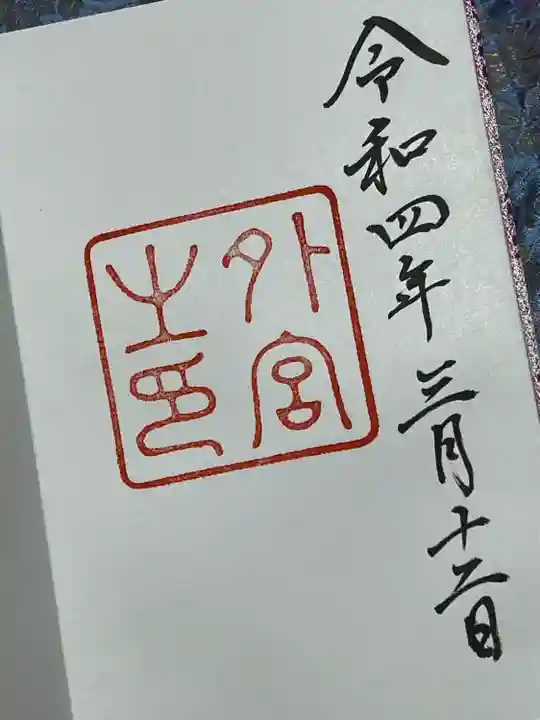 令和四年三月十二日
外宮
之印